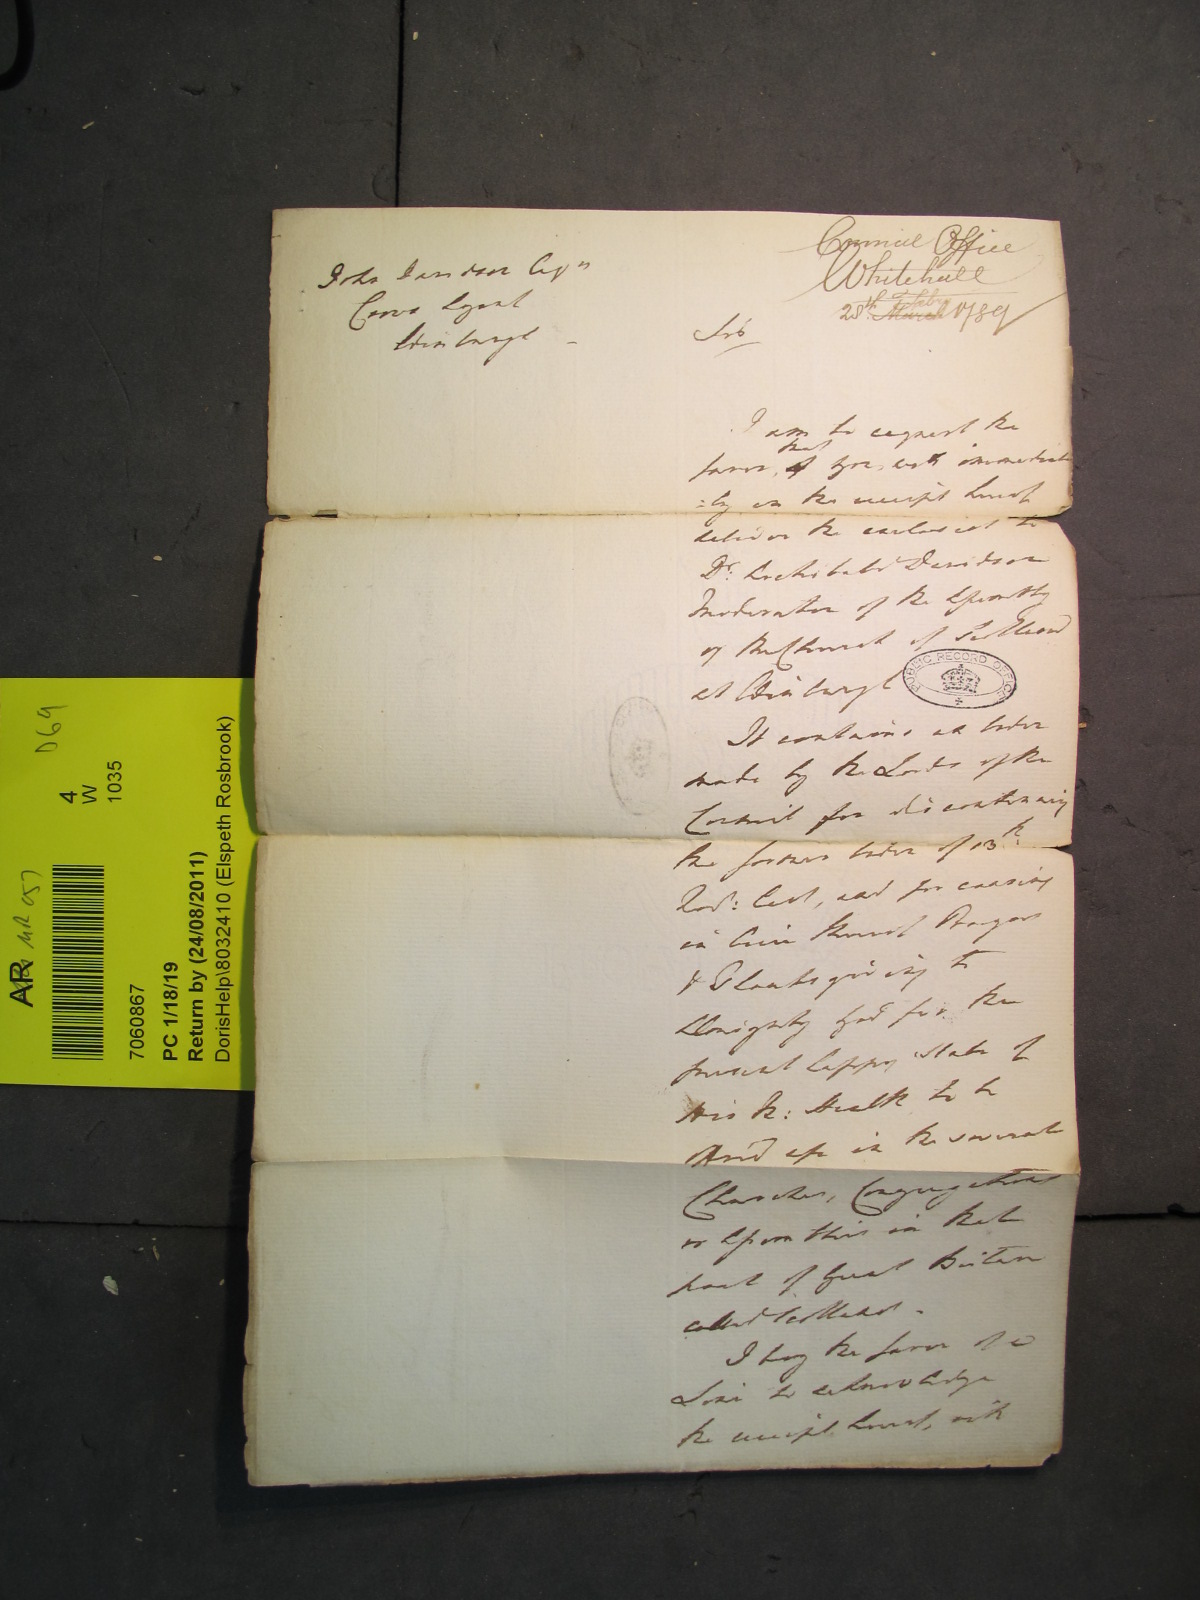 John Davidson Esqr
Crown Agent
Edinburgh
Council Office
Whitehall
28th. Feby March 1789
Sir
I am to request the
favor, of that you will immediate
=ly on the receipt hereof
deliver the enclosed to
Dr. Archibald Davidson
Moderator of the Assembly
of the Church of Scotland
at Edinburgh
It contains an order
made by the Lords of the
Council for discontinuing
the former Order of 13th
Novr: last, and for causing
in lieu thereof Prayers
& Thanksgiving to
Almighty God for the
present happy state of
His M: Health to be
Offer'd up in the several
Churches, Congregations
or Assemblies in that
part of Great Britain
called Scotland.
I beg the favor of a
Line to acknowledge
the receipt hereof, with
PUBLIC RECORD OFFICE
D69
4
W
1035
AR
MR 057
7060867
PC 1/18/19
Return by (24/08/2011)
DorisHelp\8032410 (Elspeth Rosbrook)